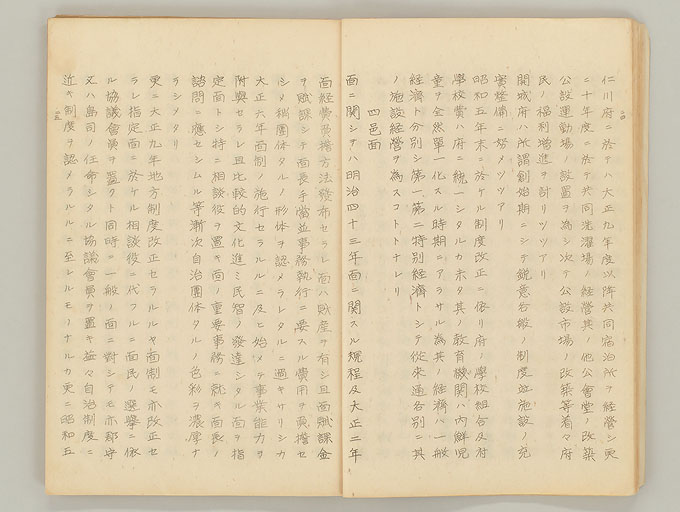 仁川府ニ於テハ大正九年度以降共同宿泊所ヲ経営シ更
ニ十年度ニ於テ共同洗濯場ノ経営其ノ他公會堂ノ改築
公設運動場ノ設置ヲ為シ次テ公設市場ノ改築等着々府
民ノ福利増進ヲ計リツツアリ
開城府ハ所謂創始期ニシテ鋭意各般ノ制度並施設ノ充
實整備ニ努メツツアリ
昭和五年末ニ於ケル制度改正ニ依リ府ノ學校組合及府
學校費ハ府ニ統一シタルカ未タ其ノ教育機関ハ内鮮児
童ヲ全然單一化スル時期ニアラサル為其ノ経済ハ一般
経済ト分別シ第一、第二特別経済トシテ従來通各別ニ其
ノ施設経営ヲ為スコトトナレリ
四邑面
面ニ関シテハ明治四十三年面ニ関スル規程及大正二年
面経費負擔方法發布セラレ面ハ財産ヲ有シ且面賦課金
ヲ賦課シテ面長手當並事務執行ニ要スル費用ヲ負擔セ
シメ稍團体タルノ形体ヲ認メラレタルニ過キサリシカ
大正六年面制ノ施行セラルルニ及ヒ始メテ事業能力ヲ
附與セラレ且比較的文化進ミ民智ノ發達シタル面ヲ指
定面トシ特ニ相談役ヲ置キ面ノ重要事務ニ就キ面長ノ
諮問ニ應セシムル等漸次自治團体タルノ色彩ヲ濃厚ナ
ラシメタリ
更ニ大正九年地方制度改正セラルルヤ面制モ亦改正セ
ラレ指定面ニ於ケル相談役ニ代フルニ面民ノ選擧ニ依
ル協議會員ヲ置クト同時ニ一般ノ面ニ對シテモ亦郡守
又ハ島司ノ任命シタル協議會員ヲ置キ益々自治制度ニ
近キ制度ヲ認メラルルニ至レルモノナルカ更ニ昭和五